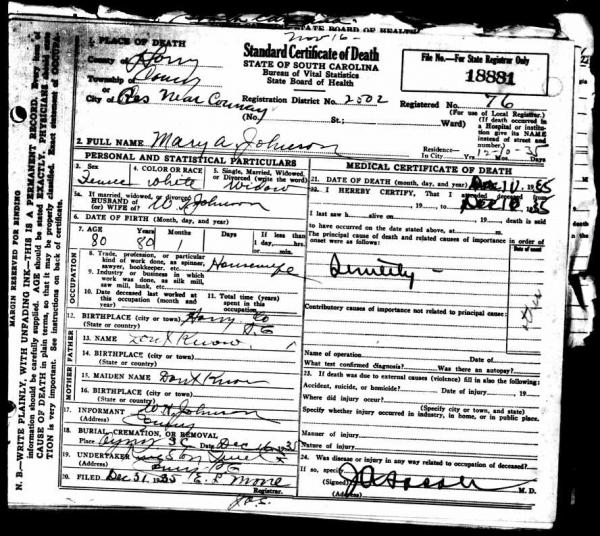 STATE BOARD OF HEALTH
Nov 16-
1. PLACE OF DEATH
County of Horry
Township of Conway
City of Res Near Conway
Standard Certificate of Death
STATE OF SOUTH CAROLINA
Bureau of Vital Statistics
State Board of Health
File No.—For State Registrar Only
18881
Registration District No. 2502
Registered No. 76
(No. St.; Ward)
(For use of Local Registrar.)
(If death occurred in a Hospital or institution give its NAME instead of street and number.)
2. FULL NAME Mary A Johnson
Residence—
In City Yrs. Mos. Days
12-10-35
PERSONAL AND STATISTICAL PARTICULARS
3. Sex Female
4. COLOR OR RACE White
5. Single, Married, Widowed, or Divorced (write the word) Widow
5a. If married, widowed, or divorced
HUSBAND of
(or) WIFE of Johnson
6. DATE OF BIRTH (Month, day, and year)
7. AGE Years Months Days If less than 1 day, hrs. or min.
80 80 1
OCCUPATION
8. Trade, profession, or particular kind of work done, as spinner, sawyer, bookkeeper, etc. Housewife
9. Industry or business in which work was done, as silk mill, saw mill, bank, etc.
10. Date deceased last worked at this occupation (month and year)
11. Total time (years) spent in this occupation
12. BIRTHPLACE (city or town) Horry Co
(State or country) S.C
FATHER
13. NAME Don't Know
14. BIRTHPLACE (city or town)
(State or country)
MOTHER
15. MAIDEN NAME Dont Know
16. BIRTHPLACE (city or town)
(State or country)
17. INFORMANT Johnson
(Address) Conway
18. BURIAL, CREMATION, OR REMOVAL
Place SC Date Dec 1935
19. UNDERTAKER
(Address) Conway SC
20. FILED Dec 31, 1935 E. L. Moore
Registrar.
MEDICAL CERTIFICATE OF DEATH
21. DATE OF DEATH (month, day, and year) Dec 10, 1935
22. I HEREBY CERTIFY, That I attended deceased from
, 19 , to Dec 10, 1935
I last saw h alive on , 19 death is said
to have occurred on the date stated above, at m.
The principal cause of death and related causes of importance in order of onset were as follows:
Date of onset
Senility -
Contributory causes of importance not related to principal cause:
Name of operation Date of
What test confirmed diagnosis? Was there an autopsy?
23. If death was due to external causes (violence) fill in also the following:
Accident, suicide, or homicide? Date of injury , 19
Where did injury occur?
(Specify city or town, and State)
Specify whether injury occurred in industry, in home, or in public place.
Manner of injury
Nature of injury
24. Was disease or injury in any way related to occupation of deceased?
If so, specify
(Signed) M. D.
(Address)
MARGIN RESERVED FOR BINDING
N. B.—WRITE PLAINLY, WITH UNFADING INK—THIS IS A PERMANENT RECORD. Every item of information should be carefully supplied. AGE should be stated EXACTLY. PHYSICIANS should state CAUSE OF DEATH in plain terms, so that it may be properly classified. Exact statement of OCCUPATION is very important. See instructions on back of certificate.